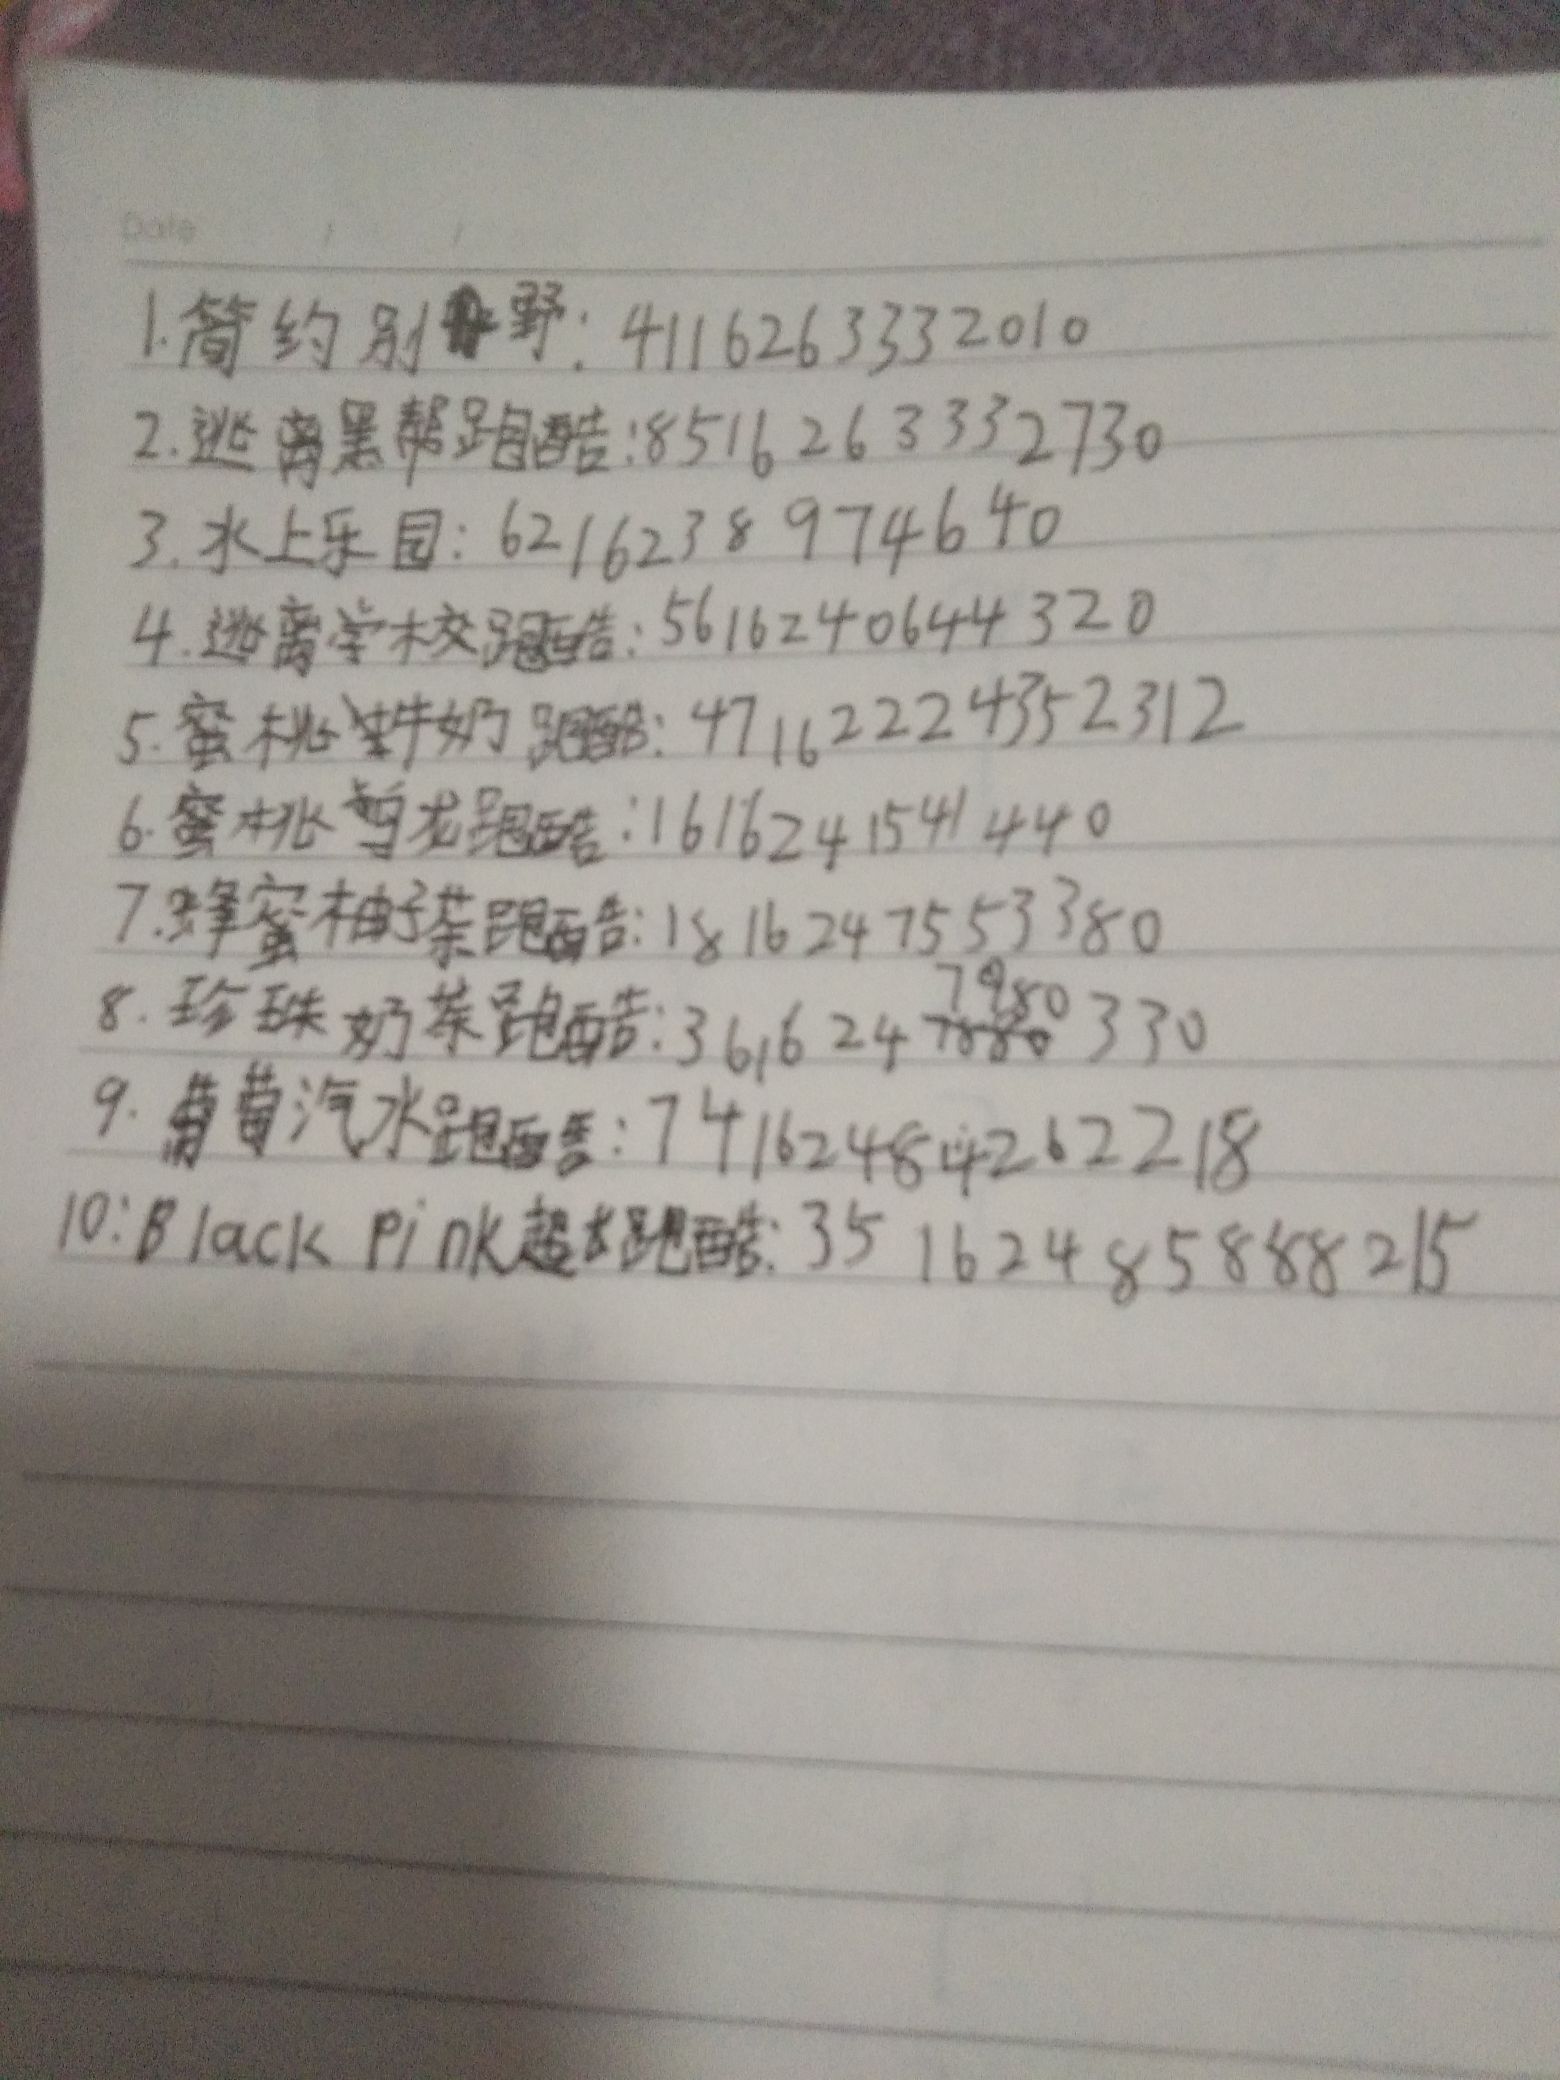 Date / /
1.简约别野:4116263332010
2.逃离黑帮跑酷:8516263332730
3.水上乐园:6216238974640
4.逃离学校跑酷:5616240644320
5.蜜桃牛奶跑酷:47162224352312
6.蜜桃 龙跑酷:1616241541440
7.蜂蜜柚子茶跑酷:1816247553380
8.珍珠奶茶跑酷:3616247980330
9.葡萄汽水跑酷:74162484262218
10:Black Pink超长跑酷:35162485888215